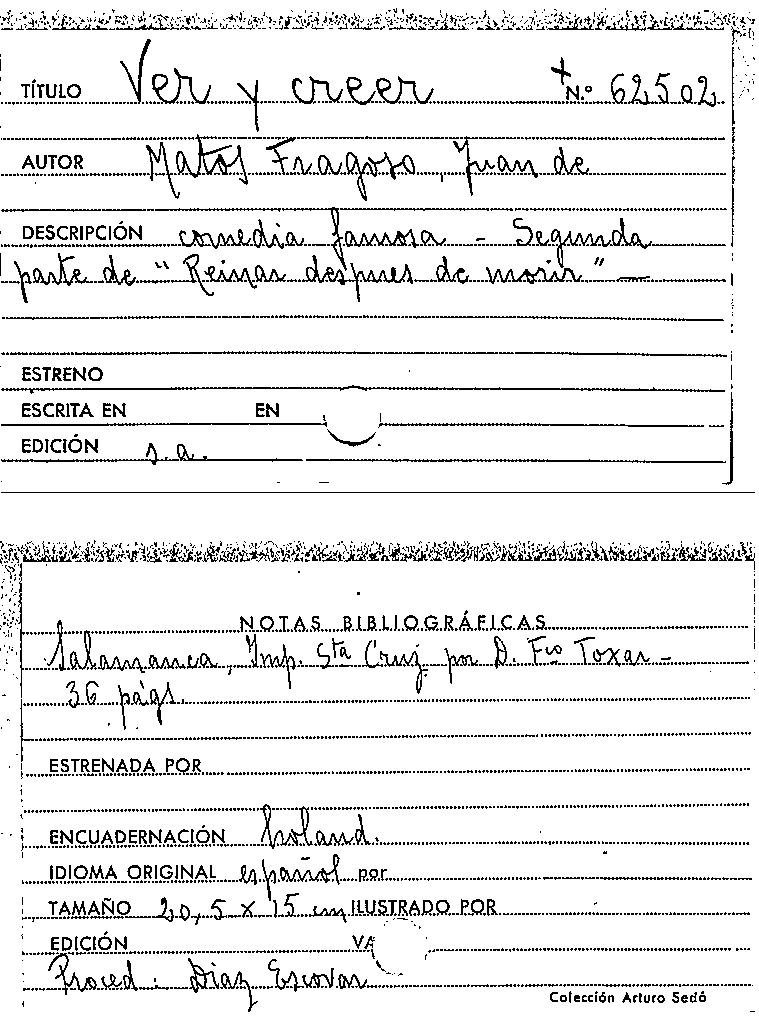 TÍTULO Ver y creer +N.º 62502
AUTOR Matos Fragoso, Juan de
DESCRIPCIÓN comedia famosa - Segunda
parte de "Reinar despues de morir" —
ESTRENO
ESCRITA EN EN
EDICIÓN s.a.
NOTAS BIBLIOGRÁFICAS
Salamanca, Imp. Sta Cruz por D. Fco Toxar -
36 págs.
ESTRENADA POR
ENCUADERNACIÓN holand.
IDIOMA ORIGINAL español por
TAMAÑO 20,5 x 15 cm ILUSTRADO POR
EDICIÓN VA
Proced: Diaz Escovar
Colección Arturo Sedó